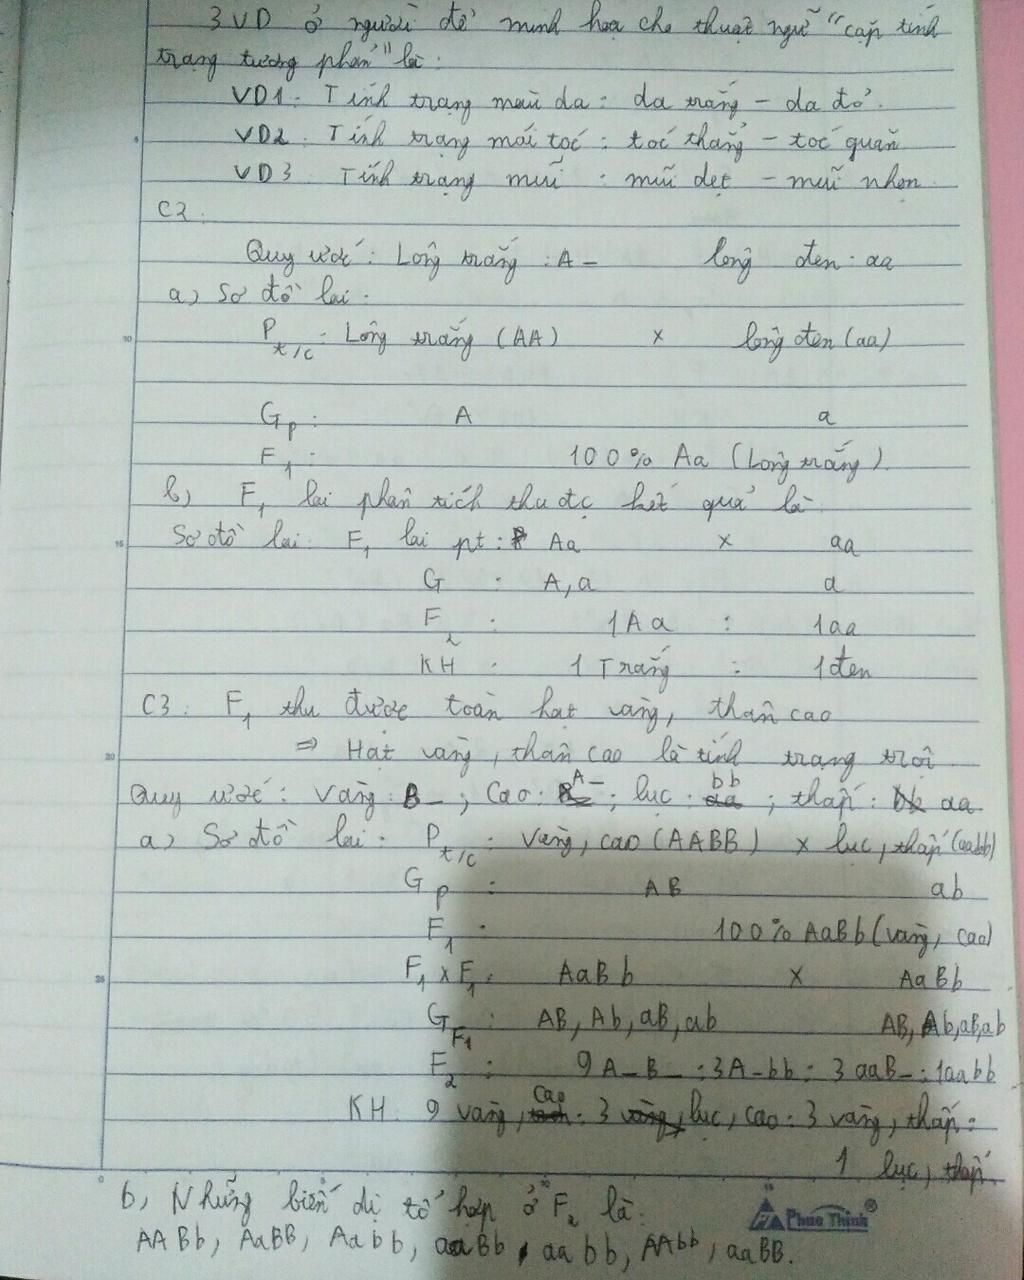 3 VD ở người để minh họa cho thuật ngữ "cặp tính
trạng tương phản" là:
VD1: Tính trạng màu da: da trắng - da đỏ.
VD2: Tính trạng mái tóc: tóc thẳng - tóc quăn
VD3 Tính trạng mũi : mũi dẹt - mũi nhọn.
C2.
Quy ước: Lông trắng: A- lông đen: aa
a) Sơ đồ lai:
P t/c: Lông trắng (AA) x lông đen (aa)
Gp: A a
F1: 100% Aa (Lông trắng).
b) F1 lai phân tích thu đc kết quả là
Sơ đồ lai: F1 lai pt: Aa x aa
G : A, a a
F2 : 1Aa : 1aa
KH : 1 Trắng : 1 đen
C3: F1 thu được toàn hạt vàng, thân cao
=> Hạt vàng, thân cao là tính trạng trội.
Quy ước: Vàng: B-; Cao: A-; lục: bb; thấp: aa
a) Sơ đồ lai: P t/c: Vàng, cao (AABB) x lục, thấp (aabb)
Gp : AB ab
F1 : 100% AaBb (vàng, cao)
F1 x F1: AaBb x AaBb
G F1 : AB, Ab, aB, ab AB, Ab, aB, ab
F2 : 9 A-B- : 3A-bb : 3 aaB- : 1aabb
KH: 9 vàng, cao : 3 lục, cao : 3 vàng, thấp :
1 lục, thấp
b, Những biến dị tổ hợp ở F2 là:
AABb, AaBB, Aabb, aaBb, aabb, AAbb, aaBB.
Phuc Thinh®